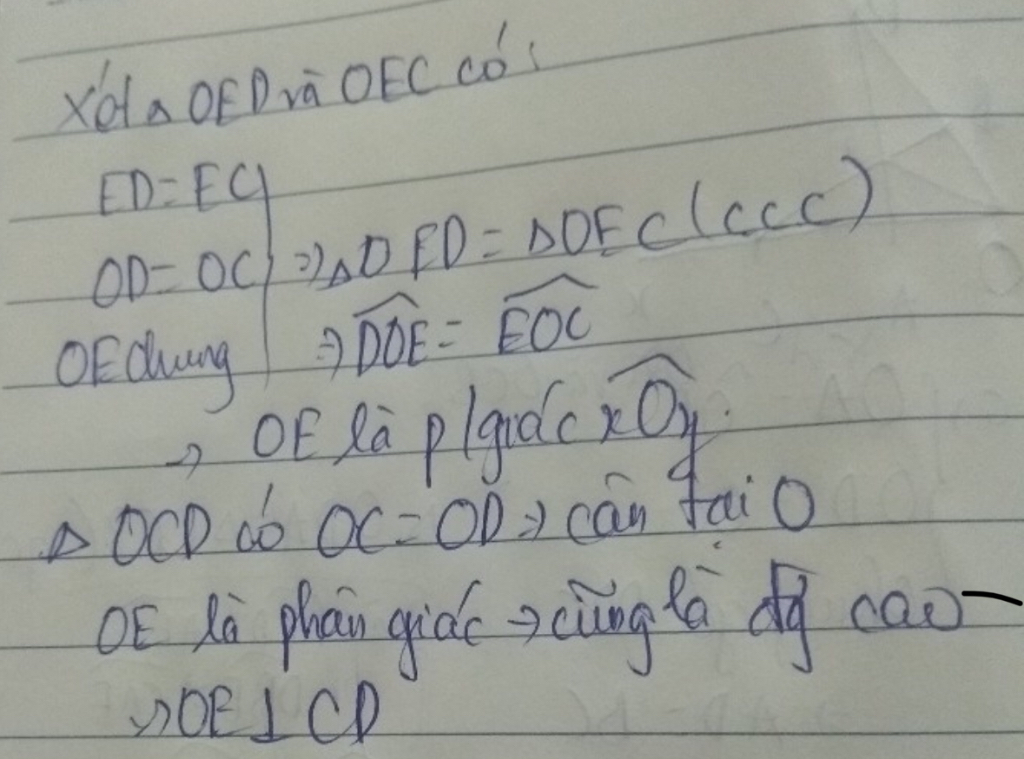 Xét △ OED và OEC có:
ED = EC
OD = OC ⇒ △OED = △OEC (ccc)
OE chung ⇒ \widehat{DOE} = \widehat{EOC}
→ OE là p/giác \widehat{xOy}.
△ OCD có OC = OD → cân tại O
OE là phân giác → cũng là đg cao
→ OE ⊥ CD